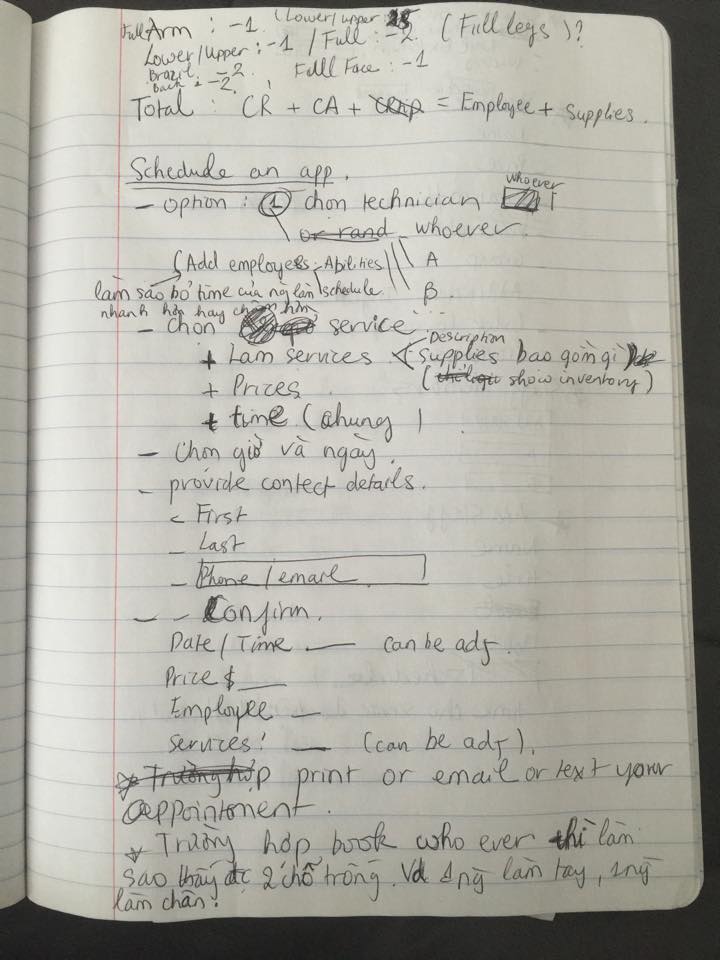 Full Arm : -1 (Lower/upper : (Full legs)?
Lower/Upper : -1 / Full : -2
Brazil : -2 Full Face : -1
Back : -2
Total : CR + CA + = Employee + Supplies.
Schedule an app.
whoever
- option : 1 chon technician
or rand whoever
(Add employees - Abilities A
làm sao bỏ time của ng làm schedule B
nhanh hơn hay chậm hơn
- Chon service
Description
+ Lam services < supplies bao gồm gì
+ Prices ( show inventory)
+ time (chung )
- Chọn giờ và ngày.
- provide contect details.
- First
- Last
- Phone / email
- - Confirm.
Date / Time — can be adj.
Price $ —
Employee —
Services: — (can be adj).
Trường hợp print or email or text your
appointment.
Trường hợp book who ever thì làm
sao thấy đc 2 chỗ trống. Vd 1 ng làm tay, 1 ng
làm chân.